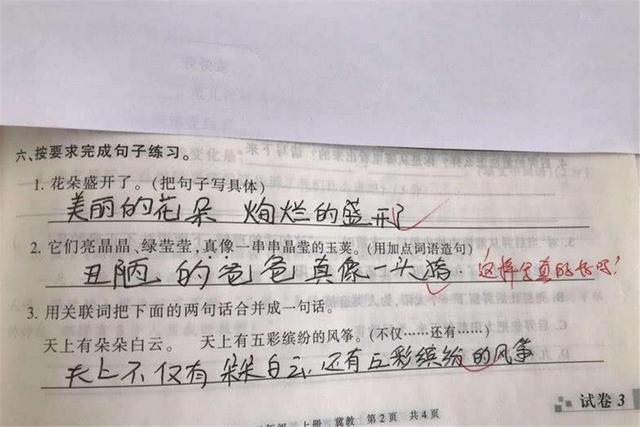 六、按要求完成句子练习。
1. 花朵盛开了。(把句子写具体)
美丽的花朵 炯烂的盛开了
2. 它们亮晶晶、绿莹莹,真像一串串晶莹的玉荚。(用加点词语造句)
丑陋的爸爸真像一头猪. 这样写真的好吗?
3. 用关联词把下面的两句话合并成一句话。
天上有朵朵白云。 天上有五彩缤纷的风筝。(不仅……还有……)
天上不仅有朵朵白云 还有五彩缤纷的风筝
上册 冀教 第2页 共4页
试卷 3